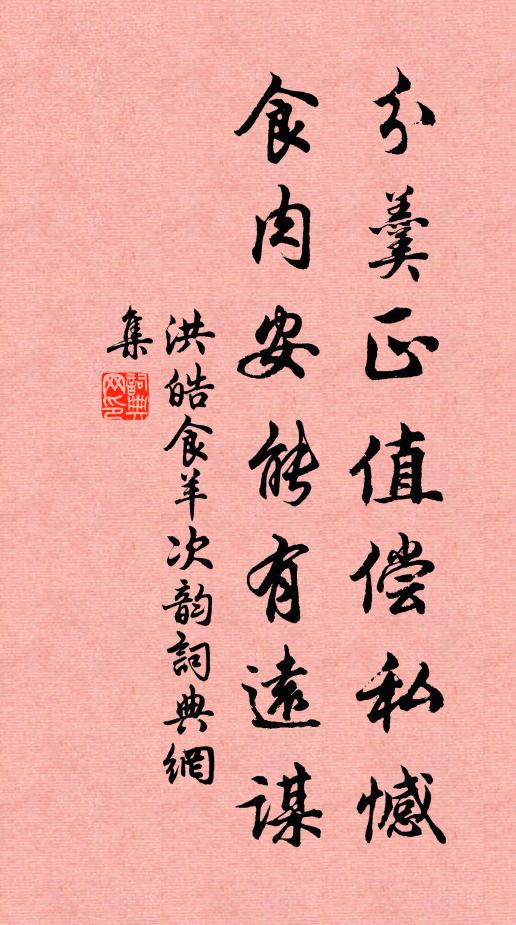 分羹正值偿私憾
食肉安能有遠謀
洪皓食羊次韵詞典網
集
詞典网印